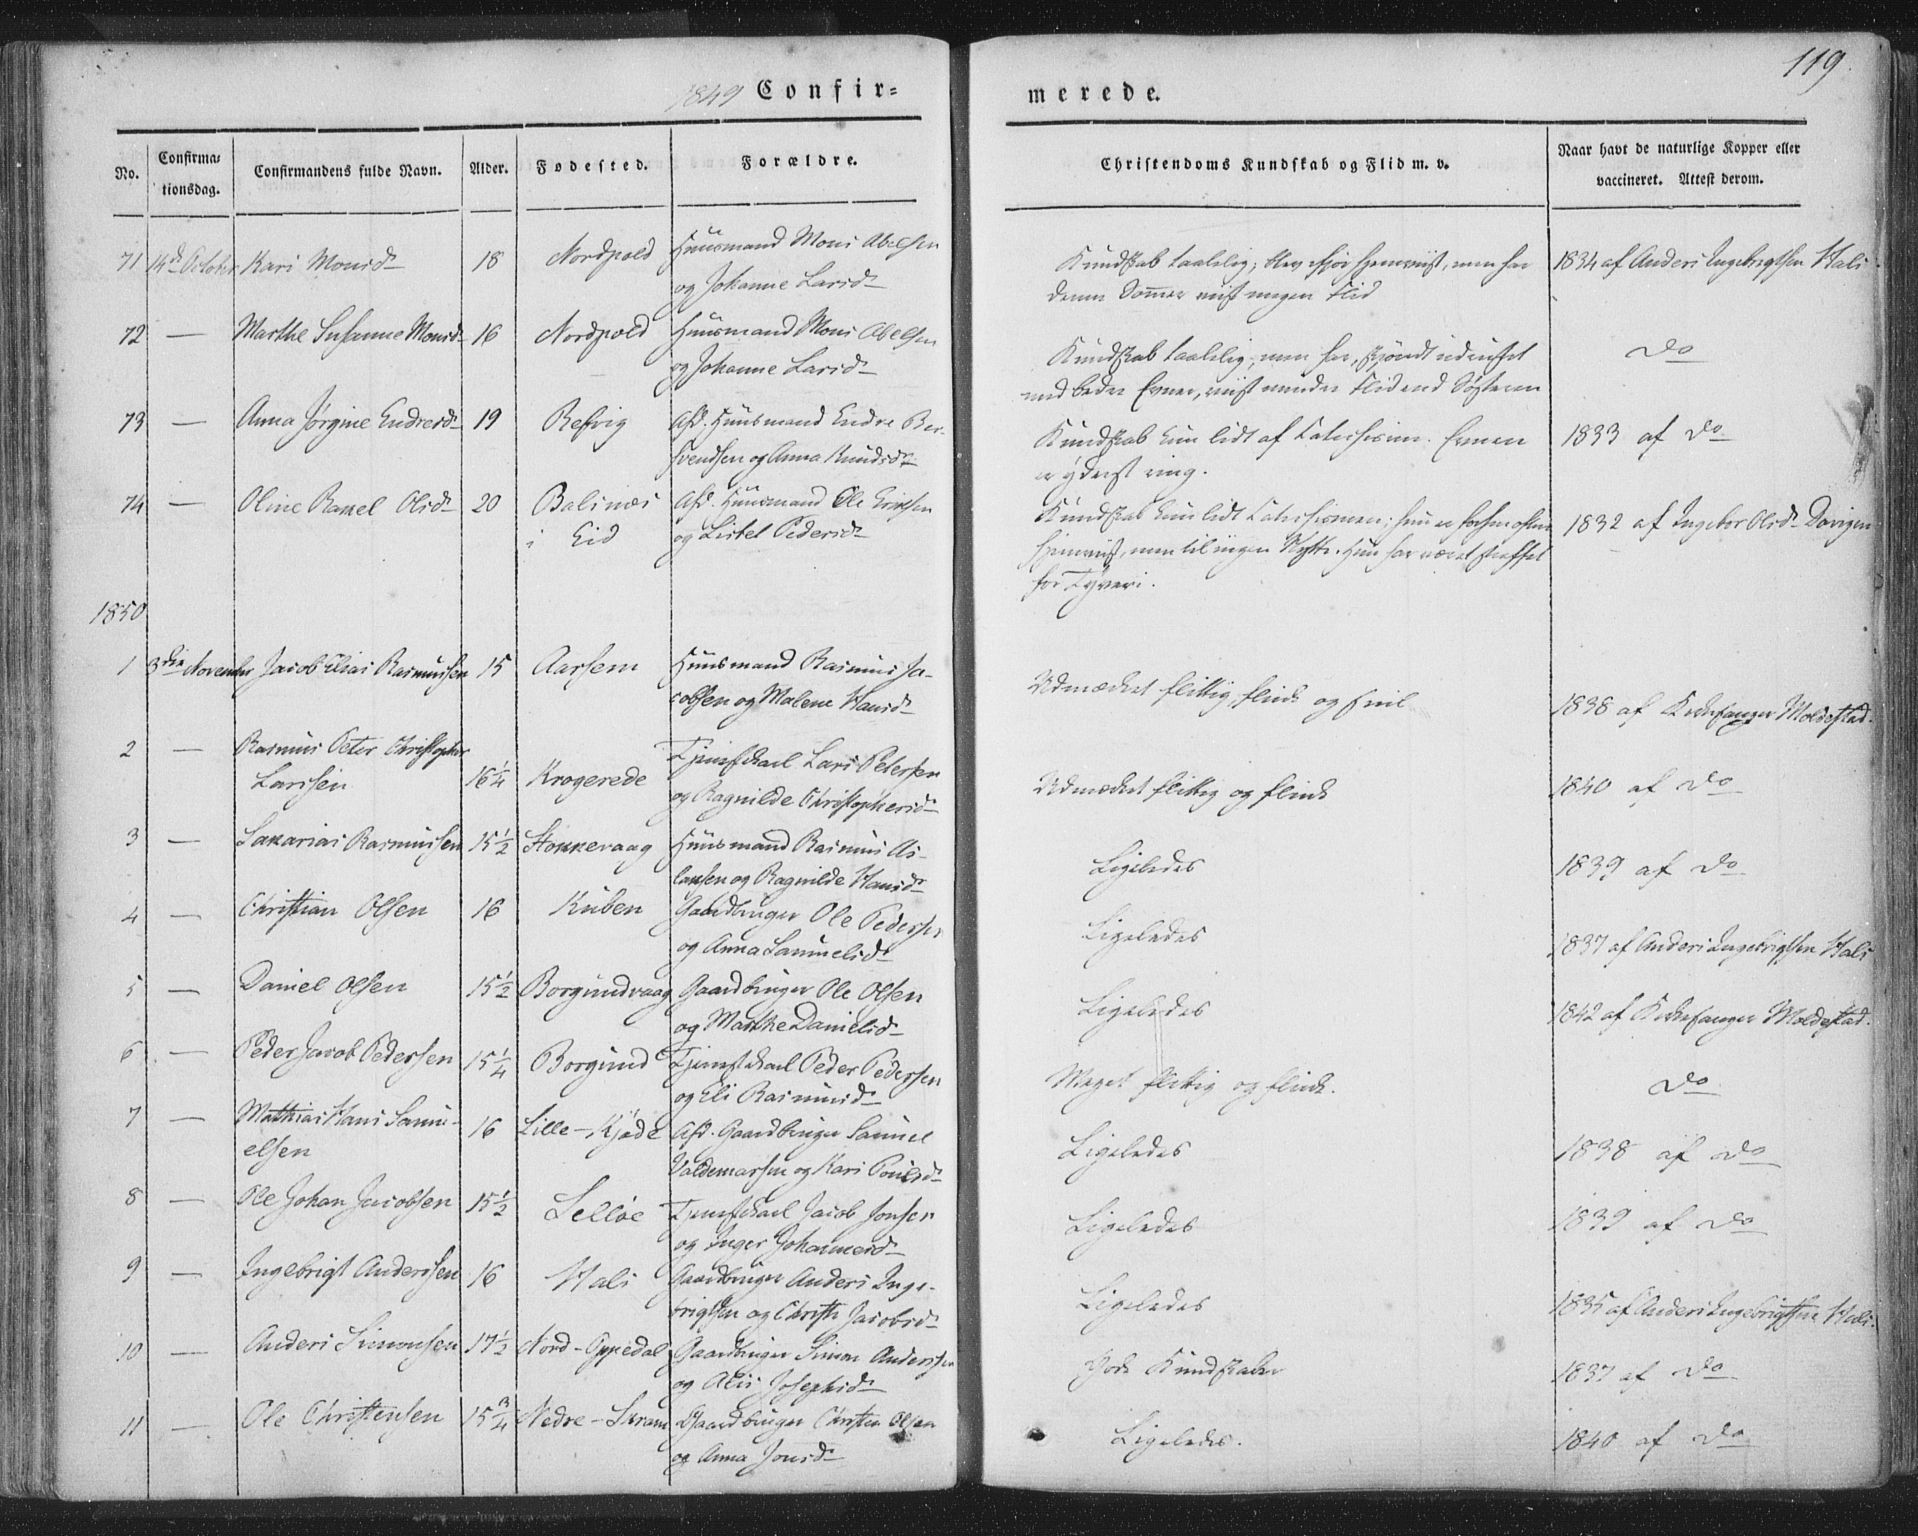 119
1849 Confir= merede.
No. Confirma= tionsdag. Confirmandens fulde Navn. Alder. Fodested. Forældre. Christendoms Kundskab og Flid m. v. Naar havt de naturlige Kopper eller vaccineret. Attest derom.
71 14de October Kari Monsd. 18 Nordpold Huusmand Mons Abelsen
og Johanne Larsd.
Kundskab taalelig; blev ifjor hjemviist, men har
denne Sommer viist megen Flid
1834 af Anders Ingebrigtsen Hals
72 — Marthe Susanne Monsd. 16 Nordpold Huusmand Mons Abelsen
og Johanne Larsd.
Kundskab taalelig, men har, skjøndt udrustet
med bedre Evner, viist mindre Flid end Søsteren
do
73 — Anna Jørgine Endresd. 19 Refvig Afd. Huusmand Endre Ber-
svendsen og Anna Knudsd.
Kundskab kun lidt af Catechismen. Evnen
er yderst ring.
1833 af do
74 — Oline Rakel Olsd. 20 Balsnæs
i Eid
Afd. Huusmand Ole Ericksen
og Lisbet Pedersd.
Kundskab kun lidt Catechismen; hun er forhen oftere
hjemviist, men til ingen Nytte. Hun har været straffet
for Tyveri.
1832 af Ingebor Olsd. Davigen
1850
1 3die November Jacob Elias Rasmussen 15 Aarsem Huusmand Rasmus Ja-
cobsen og Malene Hansd.
Udmærket flittig, flink og snil
1838 af Kirkesanger Moldestad.
2 — Rasmus Peter Christopher
Larssen 16 1/4 Krogerede Tjenestekarl Lars Petersen
og Ragnilde Christophersd.
Udmærket flittig og flink
1840 af do
3 — Sakarias Rasmussen 15 1/2 Stokkevaag Huusmand Rasmus As-
laksen og Ragnilde Hansd.
Ligeledes
1839 af do
4 — Christian Olsen 16 Kuben Gaardbruger Ole Pedersen
og Anna Samuelsd.
Ligeledes
1837 af Anders Ingebrigtsen Hals
5 — Daniel Olsen 15 1/2 Borgundvaag Gaardbruger Ole Olsen
og Marthe Danielsd.
Ligeledes
1842 af Kirkesanger Moldestad.
6 — Peder Jacob Pedersen 15 1/4 Borgund Tjenestekarl Peder Pedersen
og Eli Rasmusd.
Meget flittig og flink.
do
7 — Mathias Hans Samu-
elsen 16 Lille-Kjøde Afd. Gaardbruger Samuel
Valdemarsen og Kari Poulsd.
Ligeledes
1838 af do
8 — Ole Johan Jacobsen 15 1/2 Selløe Tjenestekarl Jacob Jonsen
og Inger Johannesd.
Ligeledes
1839 af do
9 — Ingebrigt Anderssen 16 Hals Gaardbruger Anders Inge-
brigtsen og Christi Jacobsd.
Ligeledes
1835 af Anders Ingebrigtsen Hals.
10 — Anders Simonsen 17 1/2 Nord-Oppedal Gaardbruger Simon Anderssen
og Alis Josephsd.
Gode Kundskaber
1837 af do
11 — Ole Christensen 15 3/4 Nedre-Skram Gaardbruger Christen Olsen
og Anna Jonsd.
Ligeledes.
1840 af do